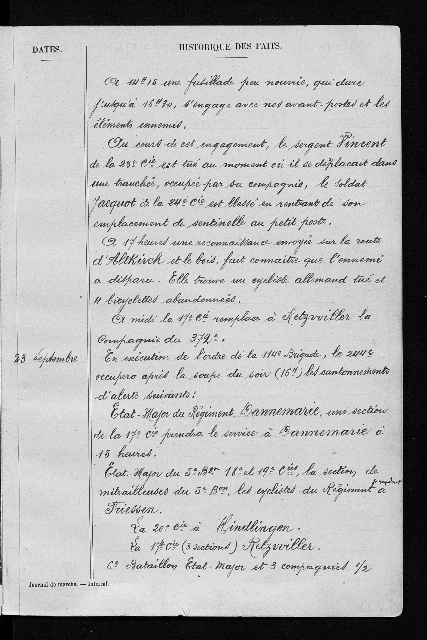 DATES.
HISTORIQUE DES FAITS.
A 14h15 une fusillade peu nourrie, qui dure
jusqu'à 16h30, s'engage avec nos avant-postes et les
éléments ennemis.
Au cours de cet engagement, le sergent Vincent
de la 23e Cie est tué au moment où il se déplaçait dans
une tranchée, occupée par sa compagnie, le soldat
Jacquot de la 24e Cie est blessé en rentrant de son
emplacement de sentinelle au petit poste.
A 17 heures une reconnaissance envoyée sur la route
d'Altkirch et le bois, fait connaître que l'ennemi
a disparu. Elle trouve un cycliste allemand tué et
4 bicyclettes abandonnées.
A midi la 17e Cie remplace à Retzwiller la
Compagnie du 372e.
23 Septembre
En exécution de l'ordre de la 114e Brigade, le 244e
occupera après la soupe du soir (16h) les cantonnements
d'alerte suivants:
Etat-Major du Régiment, Dannemarie, une section
de la 17e Cie prendra le service à Dannemarie à
15 heures.
Etat-Major du 5e Bon 18e et 19e Cies, la section de
mitrailleuses du 5e Bon, les cyclistes du Régiment à
Friessen.
La 20e Cie à Hindlingen.
La 17e Cie (3 sections) Retzwiller.
6e Bataillon Etat-Major et 3 compagnies 1/2
Journal de marche. — Intercal.